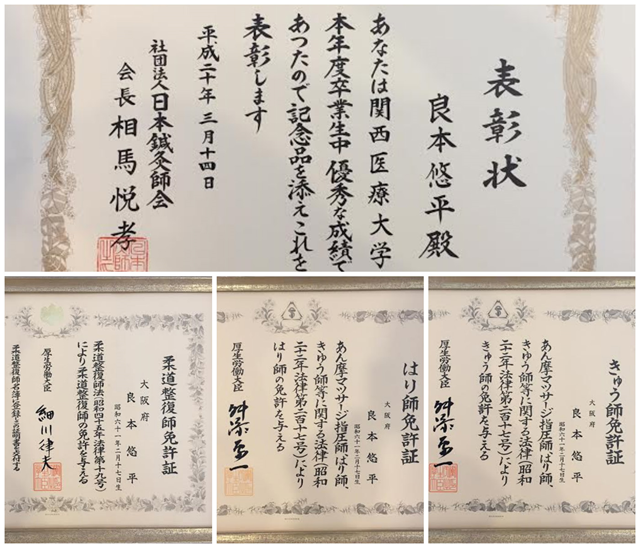 表彰状
良本悠平殿
あなたは関西医療大学
本年度卒業生中優秀な成績で
あつたので記念品を添えてこれを
表彰します
平成二十年三月十四日
社団法人日本鍼灸師会
会長相馬悦孝
柔道整復師免許証
大阪府
良本悠平
昭和六十一年二月十七日生
柔道整復師法(昭和四十五年法律第十九号)
により柔道整復師の免許を与える
厚生労働大臣
細川律夫
柔道整復師名簿に登録した証明書を交付する
はり師免許証
大阪府
良本悠平
昭和六十一年二月十七日生
あん摩マツサージ指圧師、はり師、
きゆう師等に関する法律(昭和
二十二年法律第二百十七号)により
はり師の免許を与える
厚生労働大臣
舛添要一
きゆう師免許証
大阪府
良本悠平
昭和六十一年二月十七日生
あん摩マツサージ指圧師、はり師、
きゆう師等に関する法律(昭和
二十二年法律第二百十七号)により
きゆう師の免許を与える
厚生労働大臣
舛添要一